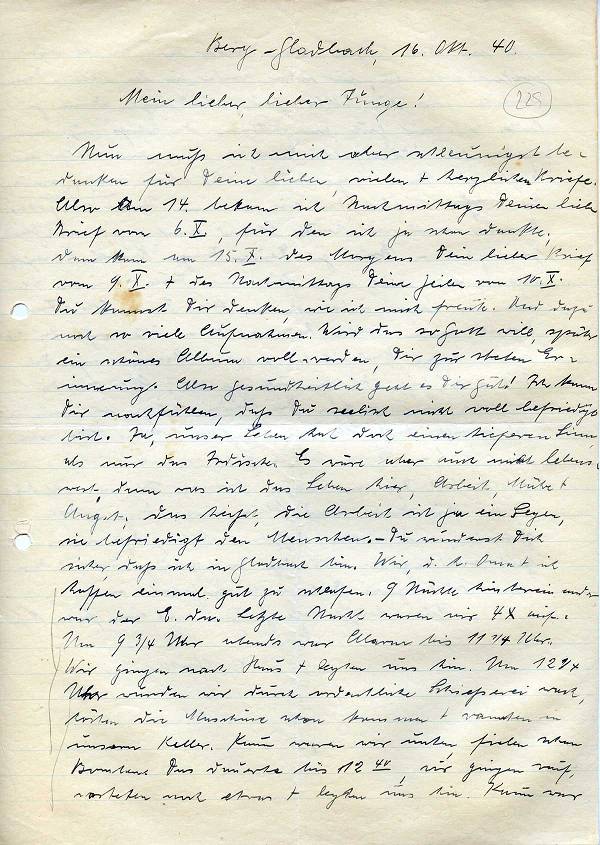 Berg-Gladbach, 16. Okt. 40.
225
Mein lieber, lieber Junge!
Nun muß ich mich aber schleunigst be-
danken für Deine lieben, vielen + herzlichen Briefe.
Also am 14. bekam ich Nachmittags Deinen lieben
Brief vom 6. X, für den ich ja schon dankte.
Dann kam am 15. X. des Morgens Dein lieber Brief
vom 9. X. + des Nachmittags Deine Zeilen vom 10. X.
Du kannst Dir denken, wie ich mich freute. Und dazu
noch so viele Aufnahmen. Wird das so Gott will, später
ein schönes Album voll werden, Dir zur steten Er-
innerung. Also gesundheitlich geht es Dir gut! Ich kann
Dir nachfühlen, daß Du seelisch nicht voll befriedigt
bist. Ja, unser Leben hat doch einen tieferen Sinn
als nur das Irdische. Es wäre aber auch nicht lebens-
wert, denn was ist das Leben hier, Arbeit, Mühe +
Angst. Das heißt, die Arbeit ist ja ein Segen,
sie befriedigt den Menschen. – Du wunderst Dich
sicher, daß ich in Gladbach bin. Wir, d. h. Oma + ich
hoffen einmal gut zu schlafen. 9 Nächte hintereinander
war der E. da. Letzte Nacht waren wir 4x auf.
Um 9 3/4 Uhr abends war Alarm bis 11 1/4 Uhr.
Wir gingen nach Haus + legten uns hin. Um 12 1/4
Uhr wurden wir durch ordentliche Schießerei wach,
hörten die Maschine schon kommen + rannten in
unseren Keller. Kaum waren wir unten, fielen schon
Bomben. Das dauerte bis 12 40, wir gingen rauf,
warteten noch etwas + legten uns hin. Kaum war